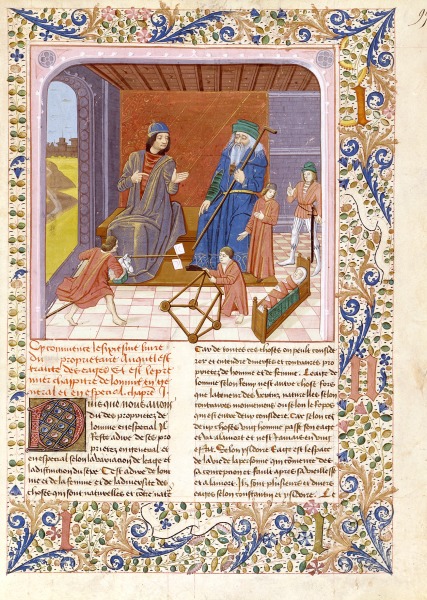 Cy commence le sixiesme livre
du proprietaire Auquel est
traitie des eages Et est le pre
mier chappitre de lomme en ge
neral et en especial chapre j.
Puis que nous auons
dit des proprietez de
lomme en especial Il
reste a dire de ses pro
prietez en general et
en especial selon la variacion de leage et
la distinction du sexe Cest a dire de lom
me et de la femme et de la diuersite des
choses qui sont naturelles et contre natu
Car de toutes ces choses on peult conside
rer et entendre diuerses et contraires pro
prietez de homme et de femme. Leage de
homme selon Remy nest autre chose fors
que la teneur des vertus naturelles selon
contraires mouuemens ou selon le repos
qui est entre deux contraires. Car selon cel
deux choses lomme passe son eage
et va a la mort et nest Jamais en ung
estat. Selon ysidore Eage est lespace
de la vie de la personne qui commence des
sa conception et fault apres sa vieillesse
et a la mort. Ilz sont plusieurs et diuers
eages selon constantin et ysidore. Le